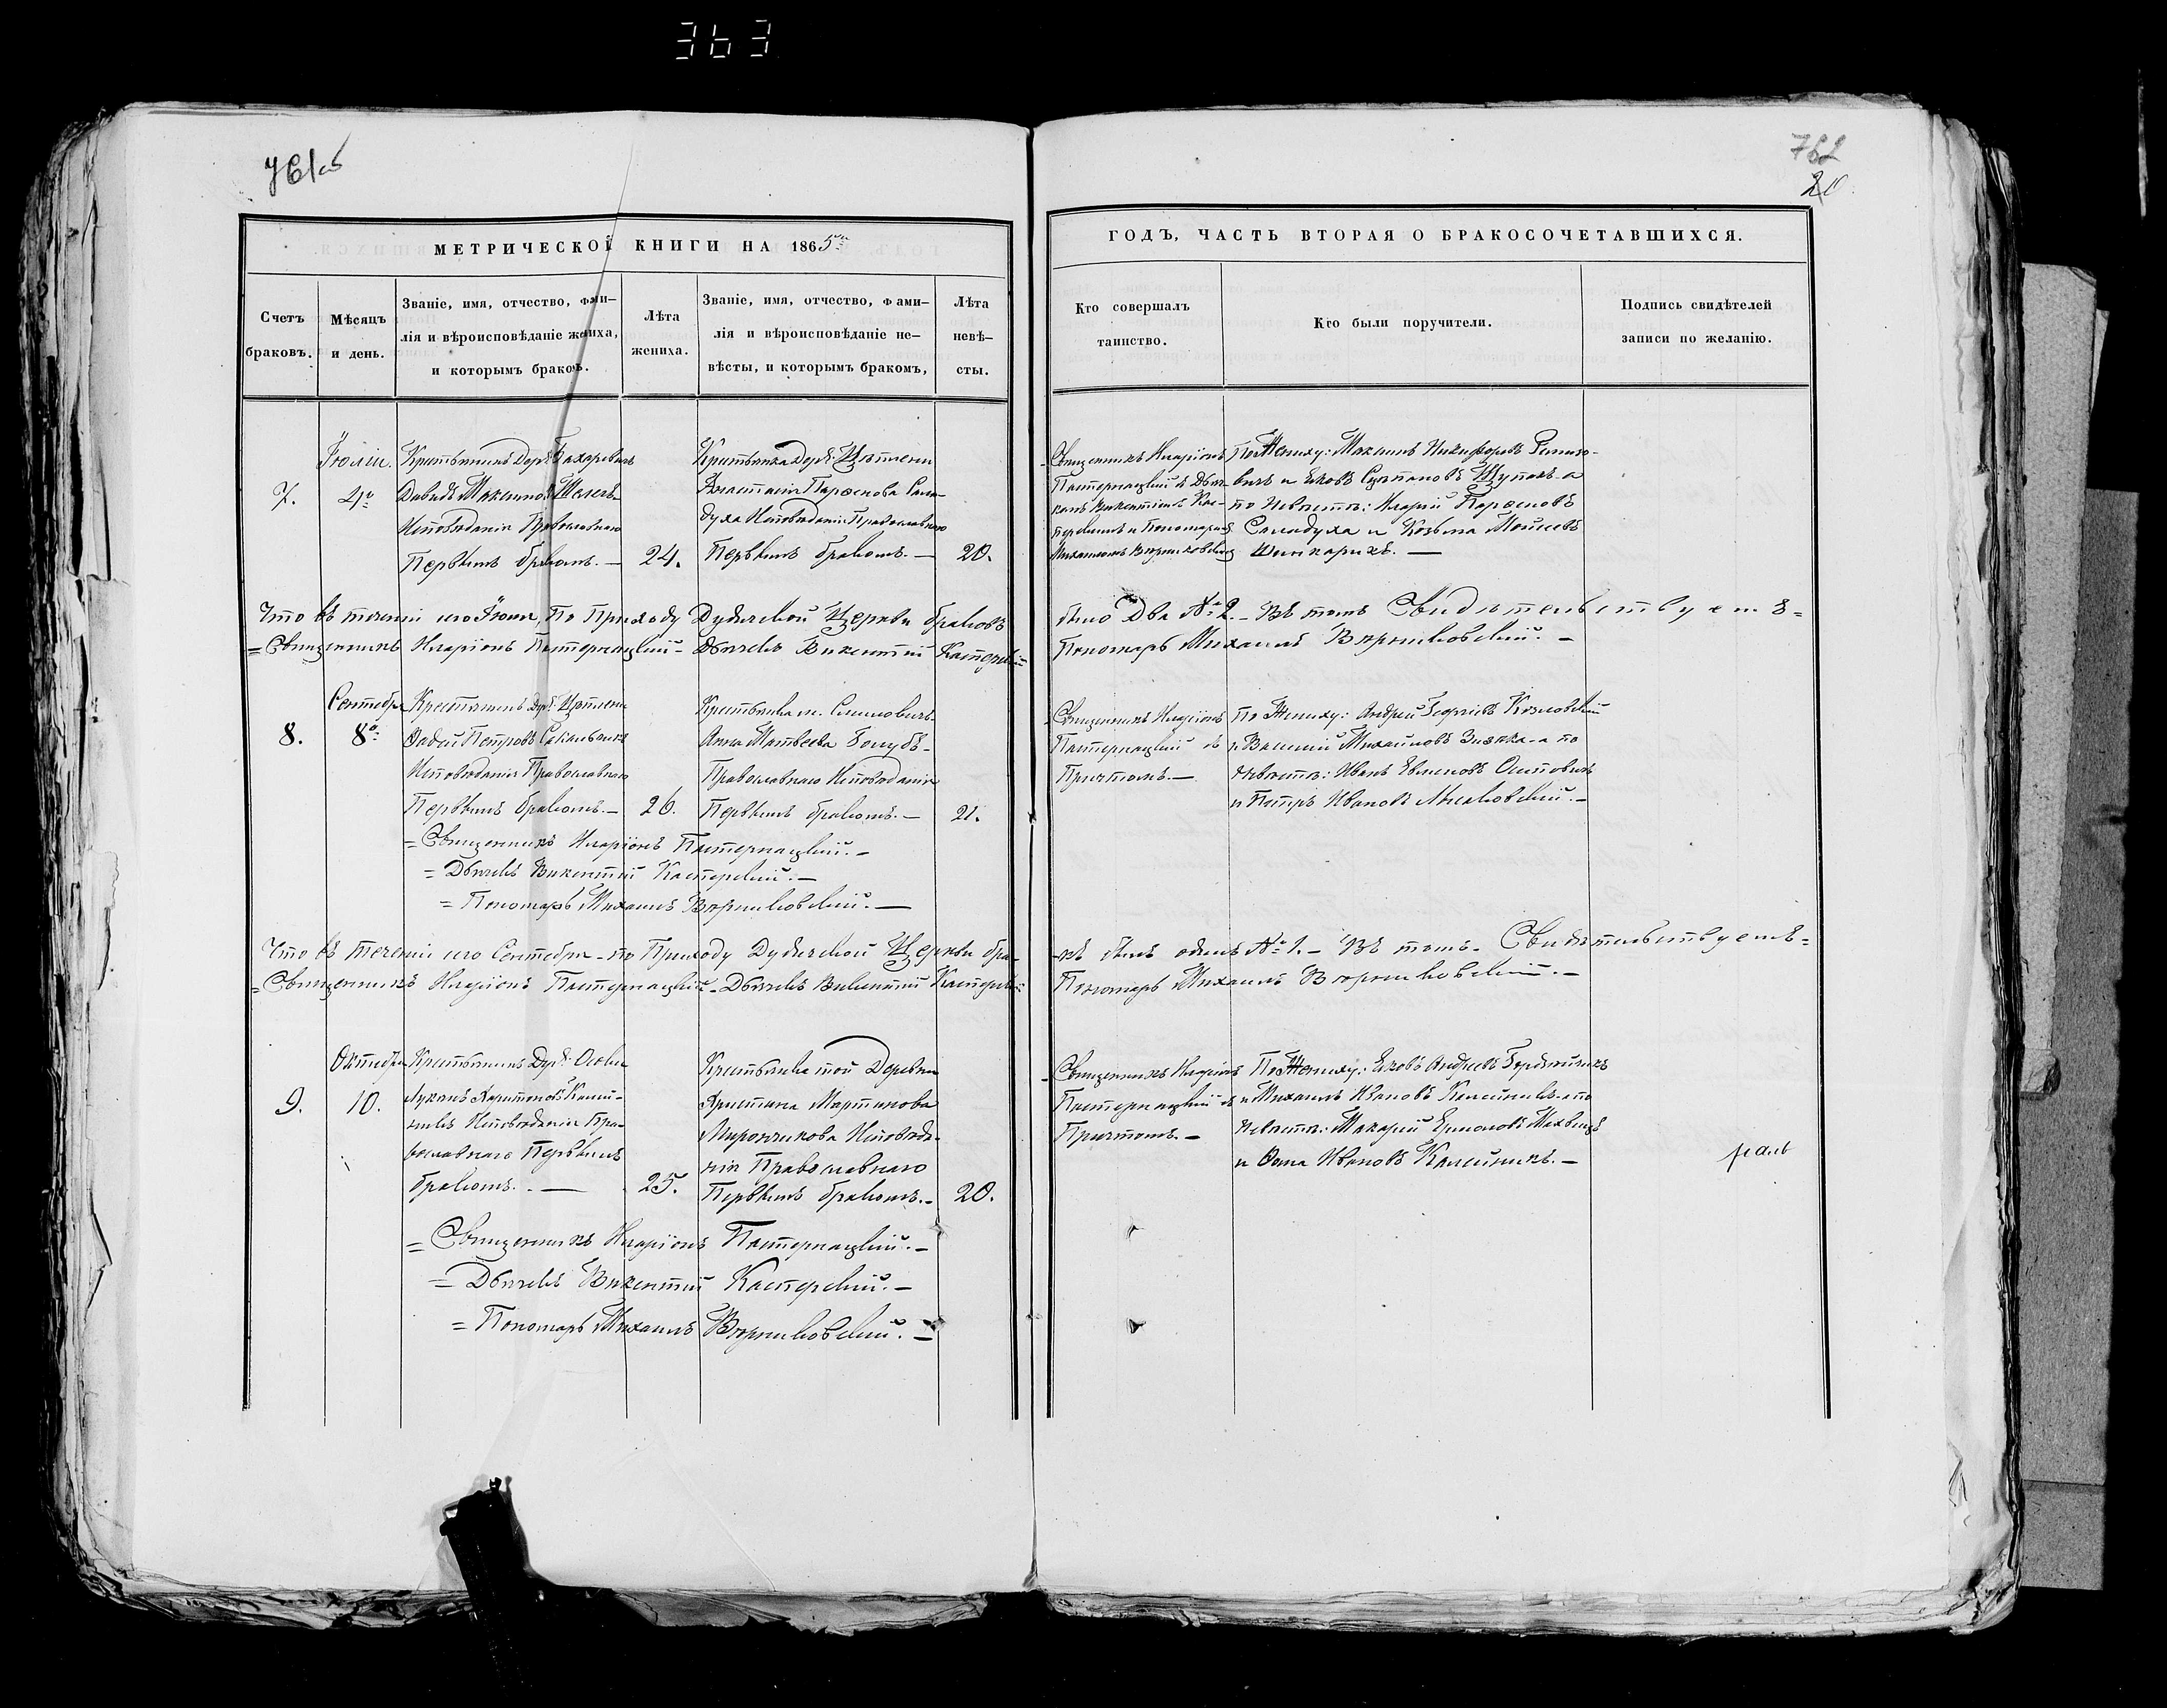 363
761об
762
20
МЕТРИЧЕСКОЙ КНИГИ НА 1865й
Счетъ браковъ.
Мѣсяцъ и день.
Званіе, имя, отчество, фами-
лія и вѣроисповѣданіе жениха,
и которымъ бракомъ.
Лѣта
жениха.
Званіе, имя, отчество, фами-
лія и вѣроисповѣданіе не-
вѣсты, и которымъ бракомъ,
Лѣта
невѣ-
сты.
7.
Іюля.
4го
Крестьянинъ Дер: Бахаревичь
Давидъ Максимовъ Шелегъ
Исповѣданія Православнаго
Первымъ бракомъ. —
24.
Крестьянка Дер: Цѣтлени
Анастасія Парѳенова Сала-
духа Исповѣданія Православнаго
Первымъ бракомъ. —
20.
Что въ теченіи сего По Приходу Дудичской Церкви браковъ
= Священникъ Иларіонъ Пастернацкій - Дьячекъ Викентій
8.
Сентября
8го
Крестьянинъ Дер: Цѣтлени
Фадей Петровъ
Исповѣданія Православнаго
Первымъ бракомъ. —
26.
Крестьянка м.
Анна Матвеева Голубъ -
Православнаго Исповѣданія
Первымъ бракомъ. —
21.
= Священникъ Иларіонъ Пастернацкій. —
= Дьячекъ Викентій Касперскій. —
= Пономарь Михаилъ —
Что въ теченіи сего Сентября - по Приходу Дудичской Церкви бра-
= Священникъ Иларіонъ Пастернацкій - Дьячекъ Викентій
9.
Октября
10.
Крестьянинъ Дер:
Лукашъ Харитоновъ Калей-
никъ Исповѣданія Пра-
вославнаго Первымъ
бракомъ. —
25.
Крестьянка той Деревни
Христина Мартинова
Мирончикова Исповѣда-
нія Православнаго
Первымъ бракомъ. —
20.
= Священникъ Иларіонъ Пастернацкій. —
= Дьячекъ Викентій Касперскій. —
= Пономарь Михаилъ —
ГОДЪ, ЧАСТЬ ВТОРАЯ О БРАКОСОЧЕТАВШИХСЯ.
Кто совершалъ
таинство.
Кто были поручители.
Подпись свидѣтелей
записи по желанію.
Священникъ Иларіонъ
Пастернацкій съ Дьяч-
комъ Викентіемъ Кас-
перскимъ и Пономаремъ
Михаиломъ
По Жениху: Максимъ Никифоровъ
вичь и Яковъ Щупакъ а
по Невѣстѣ: Иларій Парѳеновъ
Саладуха и Козьма Моисеевъ
было Два № 2. - Въ томъ Свидѣтельствуемъ =
Пономарь Михаилъ —
Священникъ Иларіонъ
Пастернацкій съ
Причтомъ. —
По Жениху: Андрей Георгіевъ Козловскій
и Василій Михайловъ а по
Невѣстѣ: Иванъ
и Петръ Ивановъ —
-къ былъ одинъ № 1. - Въ томъ - Свидѣтельствуемъ =
Пономарь Михаилъ —
Священникъ Иларіонъ
Пастернацкій съ
Причтомъ. —
По Жениху: Яковъ Андреевъ
и Михаилъ Ивановъ Калейникъ а по
Невѣстѣ: Макарій
и Ѳома Ивановъ Калейникъ. —